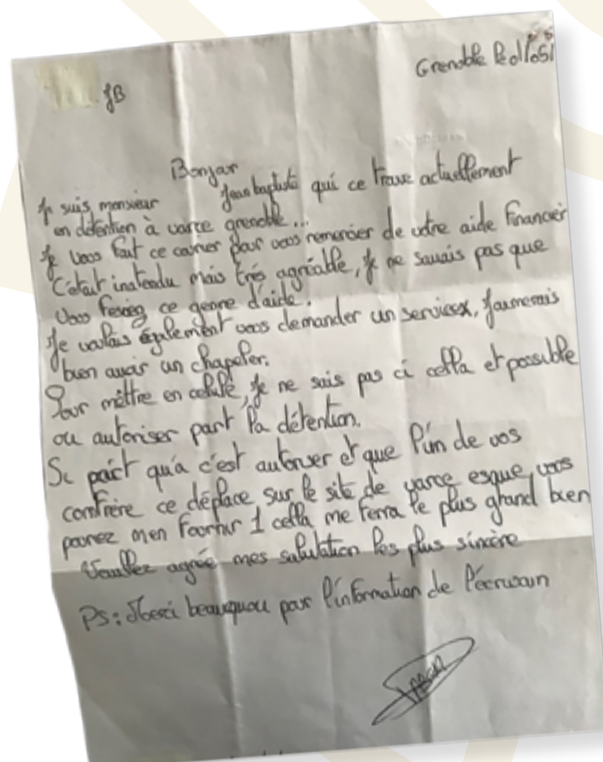 Grenoble le 01/05/
JB
Bonjar
Je suis monsieur Jean baptiste qui ce trouve actuellement
en détention à varce grenoble...
Je vous fait ce carier pour vous remercier de votre aide financier
C'était inatendu mais très agréable, je ne savais pas que
vous fesiez ce genre d'aide.
Je voulais également vous demander un services, j'aumerais
bien avoir un chapelet.
Pour mettre en cellule, je ne sais pas ci cella et possible
ou autoriser part la détention.
Si pairt qu'a c'est autoriser et que l'un de vos
confrère ce déplace sur le site de varce esque vous
pouvez m'en fournir 1 cella me ferra le plus grand bien
Veuillez agrée mes salutation les plus sincère
PS: Merci beauquou pour l'information de l'écrivain